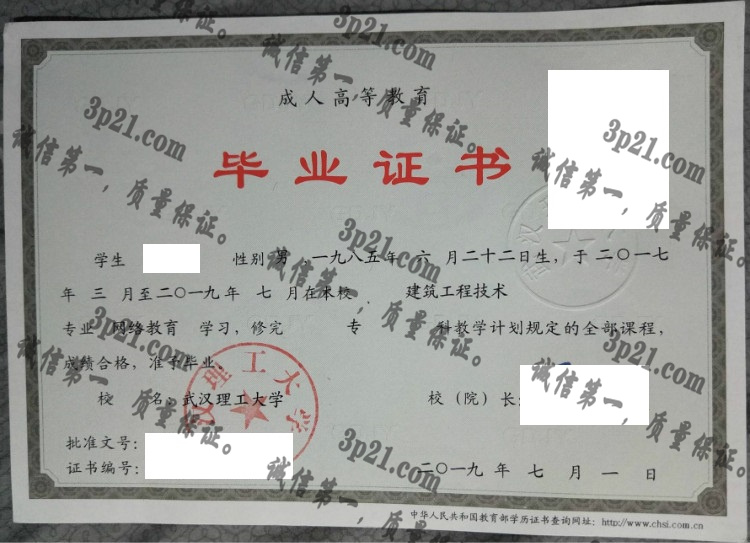 成人高等教育
毕业证书
学生 性别 男 ,一九八五年 六 月二十二日生，于 二〇一七
年 三 月至二〇一九年 七 月在本校 建筑工程技术
专业 网络教育 学习，修完 专 科教学计划规定的全部课程，
成绩合格，准予毕业。
校 名：武汉理工大学
校（院）长：
批准文号：
证书编号：
二〇一九 年 七 月 一 日
中华人民共和国教育部学历证书查询网址：http://www.chsi.com.cn
武汉理工大学
3p21.com
诚信第一，质量保证。
3p21.com
诚信第一，质量保证。
3p21.com
诚信第一，质量保证。
3p21.com
诚信第一，质量保证。
3p21.com
诚信第一，质量保证。
3p21.com
诚信第一，质量保证。
3p21.com
诚信第一，质量保证。